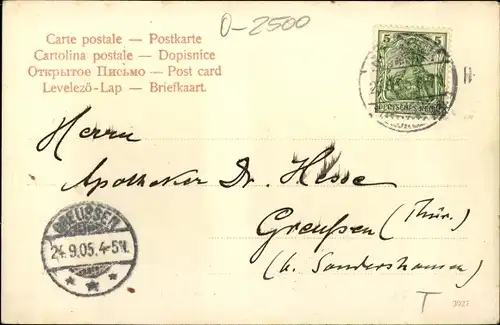 O-2500
Carte postale — Postkarte
Cartolina postale — Dopisnice
Открытое Письмо — Post card
Levelező-Lap — Briefkaart.
5 5
DEUTSCHES REICH
Herrn
Apotheker Dr. Hesse
Greußen (Thür.)
(b. Sondershausen)
GREUSSEN
24.9.05.4-5N.
T
3927